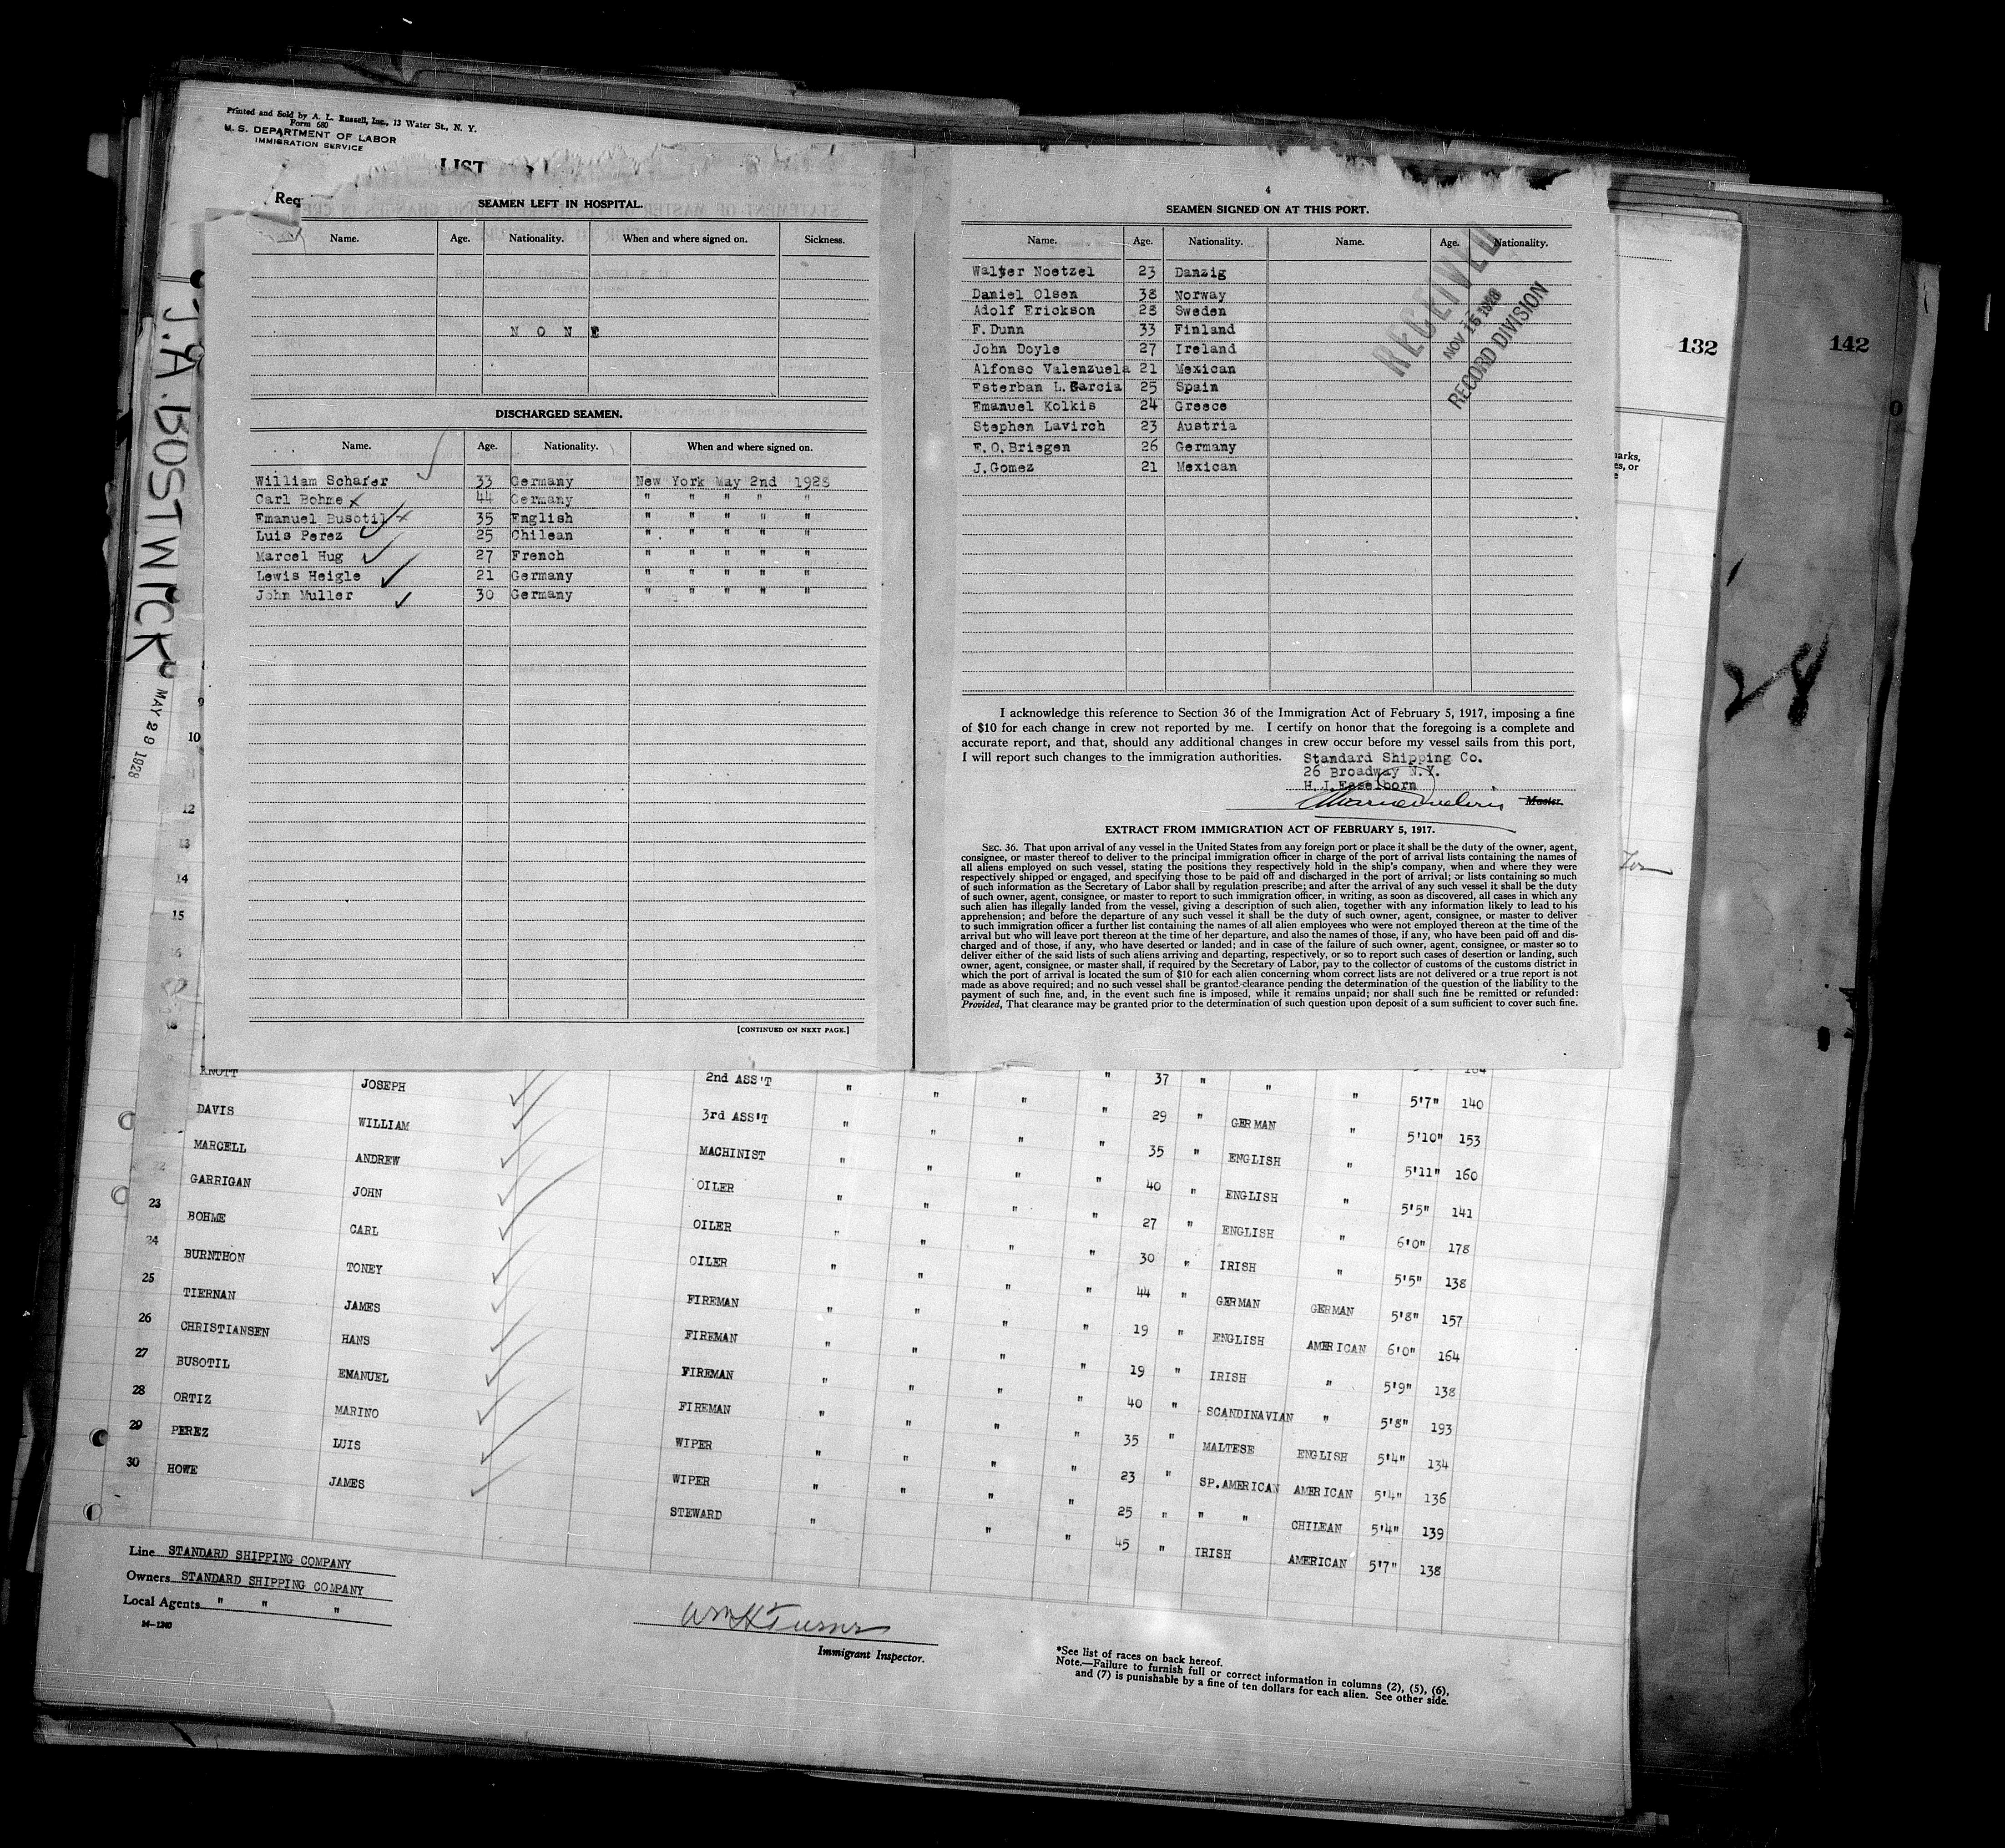 Printed and Sold by A. L. Russell, Inc., 13 Water St., N. Y.
Form 680
U. S. DEPARTMENT OF LABOR
IMMIGRATION SERVICE
LIST
Req
J.A. BOSTWICK
MAY 29 1928
SEAMEN LEFT IN HOSPITAL.
Name. Age. Nationality. When and where signed on. Sickness.
N O N E
DISCHARGED SEAMEN.
Name. Age. Nationality. When and where signed on.
William Schafer 33 Germany New York May 2nd 1928
Carl Bohme x 44 Germany " " " " "
Emanuel Busotil x 35 English " " " " "
Luis Perez 25 Chilean " " " " "
Marcel Hug 27 French " " " " "
Lewis Heigle 21 Germany " " " " "
John Muller 30 Germany " " " " "
[CONTINUED ON NEXT PAGE.]
4
SEAMEN SIGNED ON AT THIS PORT.
Name. Age. Nationality. Name. Age. Nationality.
Walter Noetzel 23 Danzig
Daniel Olsen 38 Norway
Adolf Erickson 28 Sweden
F. Dunn 33 Finland
John Doyle 27 Ireland
Alfonso Valenzuela 21 Mexican
Esterban L. Garcia 25 Spain
Emanuel Kolkis 24 Greece
Stephen Lavirch 23 Austria
F. O. Briegen 26 Germany
J. Gomez 21 Mexican
RECEIVED
NOV 16 1928
RECORD DIVISION
I acknowledge this reference to Section 36 of the Immigration Act of February 5, 1917, imposing a fine
of $10 for each change in crew not reported by me. I certify on honor that the foregoing is a complete and
accurate report, and that, should any additional changes in crew occur before my vessel sails from this port,
I will report such changes to the immigration authorities.
Standard Shipping Co.
26 Broadway N.Y.
H. J. Esselborn
Master.
EXTRACT FROM IMMIGRATION ACT OF FEBRUARY 5, 1917.
SEC. 36. That upon arrival of any vessel in the United States from any foreign port or place it shall be the duty of the owner, agent,
consignee, or master thereof to deliver to the principal immigration officer in charge of the port of arrival lists containing the names of
all aliens employed on such vessel, stating the positions they respectively hold in the ship's company, when and where they were
respectively shipped or engaged, and specifying those to be paid off and discharged in the port of arrival; or lists containing so much
of such information as the Secretary of Labor shall by regulation prescribe; and after the arrival of any such vessel it shall be the duty
of such owner, agent, consignee, or master to report to such immigration officer, in writing, as soon as discovered, all cases in which any
such alien has illegally landed from the vessel, giving a description of such alien, together with any information likely to lead to his
apprehension; and before the departure of any such vessel it shall be the duty of such owner, agent, consignee, or master to deliver
to such immigration officer a further list containing the names of all alien employees who were not employed thereon at the time of the
arrival but who will leave port thereon at the time of her departure, and also the names of those, if any, who have been paid off and dis-
charged and of those, if any, who have deserted or landed; and in case of the failure of such owner, agent, consignee, or master so to
deliver either of the said lists of such aliens arriving and departing, respectively, or so to report such cases of desertion or landing, such
owner, agent, consignee, or master shall, if required by the Secretary of Labor, pay to the collector of customs of the customs district in
which the port of arrival is located the sum of $10 for each alien concerning whom correct lists are not delivered or a true report is not
made as above required; and no such vessel shall be granted clearance pending the determination of the question of the liability to the
payment of such fine, and, in the event such fine is imposed, while it remains unpaid; nor shall such fine be remitted or refunded:
Provided, That clearance may be granted prior to the determination of such question upon deposit of a sum sufficient to cover such fine.
132
142
arks,
es, or
e
28
9
10
12
13
14
15
16
KNOTT JOSEPH 2nd ASS'T " " " " 37 " " " 5'7" 140
DAVIS WILLIAM 3rd ASS'T " " " " 29 " GERMAN " 5'10" 153
MARCELL ANDREW MACHINIST " " " " 35 " ENGLISH " 5'11" 160
22 GARRIGAN JOHN OILER " " " " 40 " ENGLISH " 5'5" 141
23 BOHME CARL OILER " " " " 27 " ENGLISH " 6'0" 178
24 BURNTHON TONEY OILER " " " " 30 " IRISH " 5'5" 138
25 TIERNAN JAMES FIREMAN " " " " 44 " GERMAN GERMAN 5'8" 157
26 CHRISTIANSEN HANS FIREMAN " " " " 19 " ENGLISH AMERICAN 6'0" 164
27 BUSOTIL EMANUEL FIREMAN " " " " 19 " IRISH " 5'9" 138
28 ORTIZ MARINO FIREMAN " " " " 40 " SCANDINAVIAN " 5'8" 193
29 PEREZ LUIS WIPER " " " " 35 " MALTESE ENGLISH 5'4" 134
30 HOWE JAMES WIPER " " " " 23 " SP.AMERICAN AMERICAN 5'4" 136
STEWARD " " " 25 " " " CHILEAN 5'4" 139
45 " IRISH AMERICAN 5'7" 138
Line STANDARD SHIPPING COMPANY
Owners STANDARD SHIPPING COMPANY
Local Agents " " "
14-1240
Wm H Turner
Immigrant Inspector.
*See list of races on back hereof.
Note.—Failure to furnish full or correct information in columns (2), (5), (6),
and (7) is punishable by a fine of ten dollars for each alien. See other side.